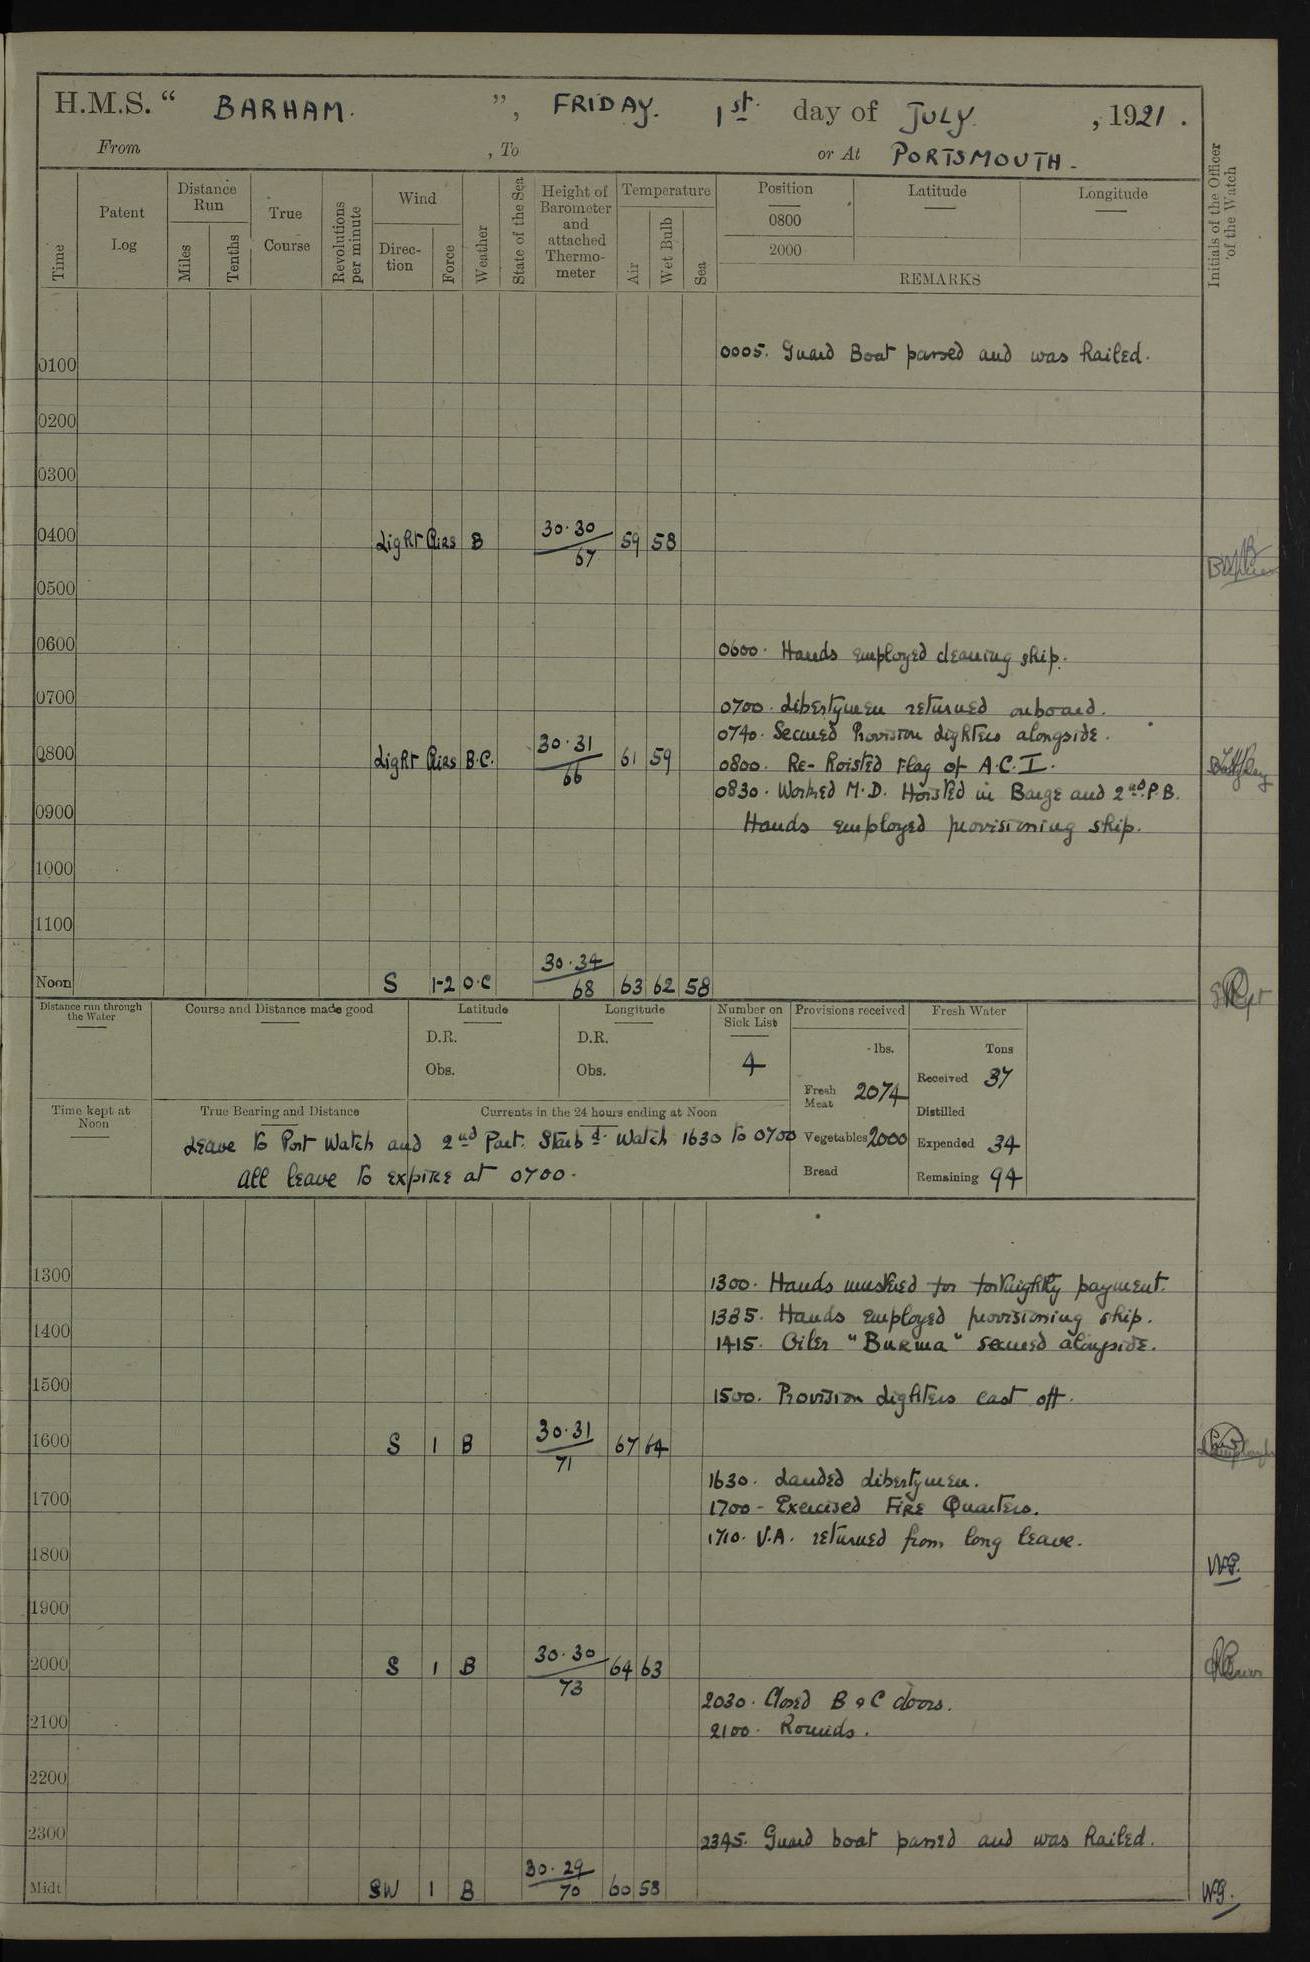 H.M.S. “ BARHAM. ”, FRIDAY. 1st. day of JULY , 1921.
From , To or At PORTSMOUTH.
Time
Patent Log
Distance Run
Miles
Tenths
True Course
Revolutions per minute
Wind
Direc-tion
Force
Weather
State of the Sea
Height of Barometer and attached Thermo-meter
Temperature
Air
Wet Bulb
Sea
Position Latitude Longitude
0800
2000
REMARKS
Initials of the Officer of the Watch
0005. Guard Boat passed and was hailed.
0100
0200
0300
0400 Light Airs B 30.30 67 59 58
0500
0600 0600. Hands employed cleaning ship.
0700 0700. Libertymen returned onboard.
0740. Secured Provision Lighters alongside.
0800 Light Airs B.C. 30.31 66 61 59 0800. Re-hoisted Flag of A.C.I.
0830. Worked M.D. Hoisted in Barge and 2nd. P.B.
0900 Hands employed provisioning ship.
1000
1100
Noon S 1-2 O.C 30.34 68 63 62 58
Distance run through the Water
Course and Distance made good
Latitude
D.R.
Obs.
Longitude
D.R.
Obs.
Number on Sick List
4
Provisions received
lbs.
Fresh Meat 2074
Vegetables 2000
Bread
Fresh Water
Tons
Received 37
Distilled
Expended 34
Remaining 94
Time kept at Noon
True Bearing and Distance
Currents in the 24 hours ending at Noon
Leave to Port Watch and 2nd Part. Starbd. Watch 1630 to 0700
All leave to expire at 0700.
1300 1300. Hands mustered for fortnightly payment.
1335. Hands employed provisioning ship.
1400 1415. Oiler "Burma" secured alongside.
1500 1500. Provision Lighters cast off.
1600 S 1 B 30.31 71 67 64
1630. Landed Libertymen.
1700 1700 - Exercised Fire Quarters.
1710. V.A. returned from long leave.
1800 W.G.
1900
2000 S 1 B 30.30 73 64 63
2030. Closed B & C doors.
2100 2100. Rounds.
2200
2300 2345. Guard boat passed and was hailed.
Midt SW 1 B 30.29 70 60 58 W.G.